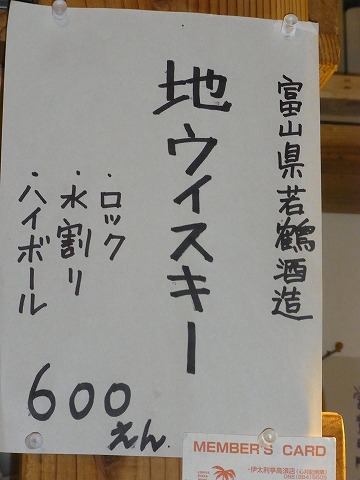 富山県若鶴酒造
地ウイスキー
・ロック
・水割り
・ハイボール
600
えん
MEMBER'S CARD